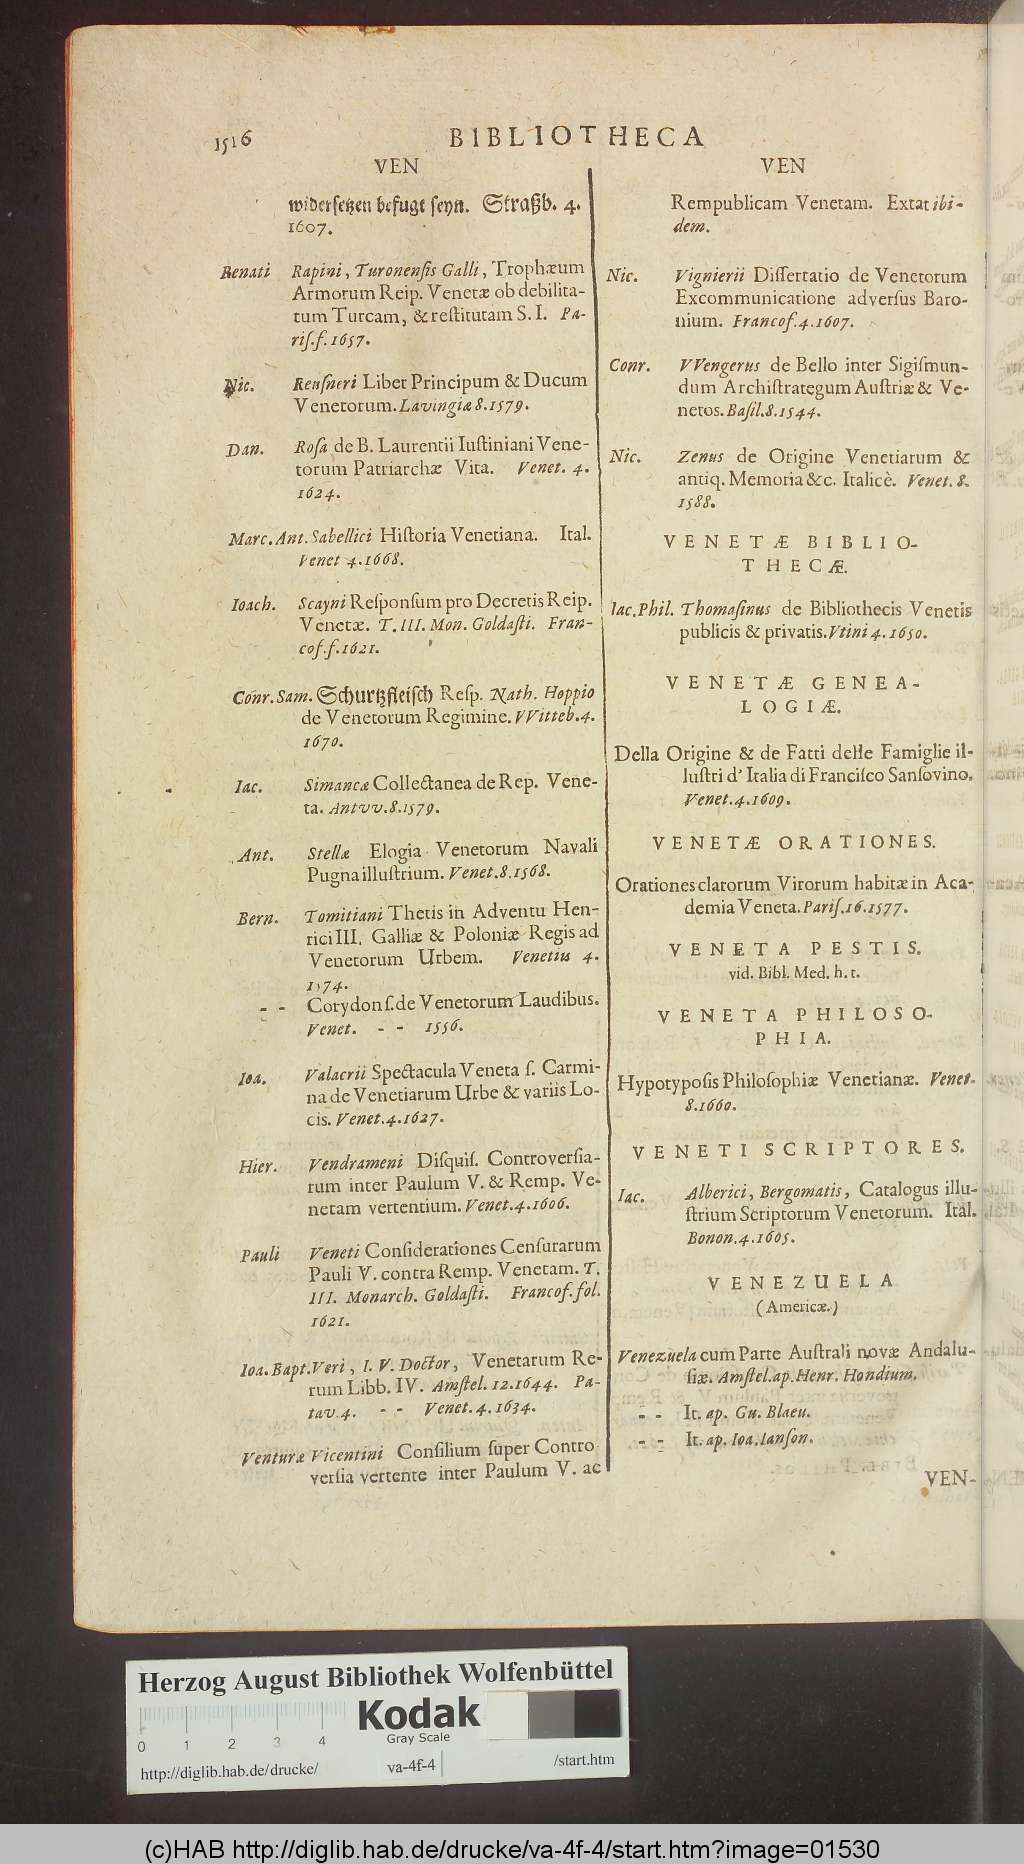 1516
BIBLIOTHECA
VEN
widersetzen befugt seyn. Straßb. 4.
1607.
Renati Rapini, Turonenſis Galli, Trophæum
Armorum Reip. Venetæ ob debilita-
tum Turcam, & reſtitutam S. I. Pa-
riſ. f. 1657.
Nic. Reuſneri Liber Principum & Ducum
Venetorum. Lavingiæ 8. 1579.
Dan. Roſa de B. Laurentii Iuſtiniani Vene-
torum Patriarchæ Vita. Venet. 4.
1624.
Marc. Ant. Sabellici Hiſtoria Venetiana. Ital.
Venet 4. 1668.
Ioach. Scayni Reſponſum pro Decretis Reip.
Venetæ. T. III. Mon. Goldaſti. Fran-
cof. f. 1621.
Conr. Sam. Schurtzfleiſch Reſp. Nath. Hoppio
de Venetorum Regimine. VVitteb. 4.
1670.
Iac. Simancæ Collectanea de Rep. Vene-
ta. Antvv. 8. 1579.
Ant. Stellæ Elogia Venetorum Navali
Pugna illuſtrium. Venet. 8. 1568.
Bern. Tomitiani Thetis in Adventu Hen-
rici III. Galliæ & Poloniæ Regis ad
Venetorum Urbem. Venetiis 4.
1574.
- - Corydon ſ. de Venetorum Laudibus.
Venet. - - 1556.
Ioa. Valacrii Spectacula Veneta ſ. Carmi-
na de Venetiarum Urbe & variis Lo-
cis. Venet. 4. 1627.
Hier. Vendrameni Diſquiſ. Controverſia-
rum inter Paulum V. & Remp. Ve-
netam vertentium. Venet. 4. 1606.
Pauli Veneti Conſiderationes Cenſurarum
Pauli V. contra Remp. Venetam. T.
III. Monarch. Goldaſti. Francof. fol.
1621.
Ioa. Bapt. Veri, I. V. Doctor, Venetarum Re-
rum Libb. IV. Amſtel. 12. 1644. Pa-
tav. 4. - - Venet. 4. 1634.
Venturæ Vicentini Conſilium ſuper Contro
verſia vertente inter Paulum V. ac
VEN
Rempublicam Venetam. Extat ibi-
dem.
Nic. Vignierii Diſſertatio de Venetorum
Excommunicatione adverſus Baro-
nium. Francof. 4. 1607.
Conr. VVengerus de Bello inter Sigiſmun-
dum Archiſtrategum Auſtriæ & Ve-
netos. Baſil. 8. 1544.
Nic. Zenus de Origine Venetiarum &
antiq. Memoria &c. Italicè. Venet. 8.
1588.
VENETÆ BIBLIO-
THECÆ.
Iac. Phil. Thomaſinus de Bibliothecis Venetis
publicis & privatis. Vtini 4. 1650.
VENETÆ GENEA-
LOGIÆ.
Della Origine & de Fatti delle Famiglie il-
luſtri d'Italia di Franciſco Sanſovino.
Venet. 4. 1609.
VENETÆ ORATIONES.
Orationes clarorum Virorum habitæ in Aca-
demia Veneta. Pariſ. 16. 1577.
VENETA PESTIS.
vid. Bibl. Med. h. t.
VENETA PHILOSO-
PHIA.
Hypotypoſis Philoſophiæ Venetianæ. Venet.
8. 1660.
VENETI SCRIPTORES.
Iac. Alberici, Bergomatis, Catalogus illu-
ſtrium Scriptorum Venetorum. Ital.
Bonon. 4. 1605.
VENEZUELA
(Americæ.)
Venezuela cum Parte Auſtrali novæ Andalu-
ſiæ. Amſtel. ap. Henr. Hondium.
- - It. ap. Gu. Blaeu.
- - It. ap. Ioa. Ianſon.
VEN-
Herzog August Bibliothek Wolfenbüttel
Kodak
Gray Scale
0 1 2 3 4
http://diglib.hab.de/drucke/ va-4f-4 /start.htm
(c)HAB http://diglib.hab.de/drucke/va-4f-4/start.htm?image=01530